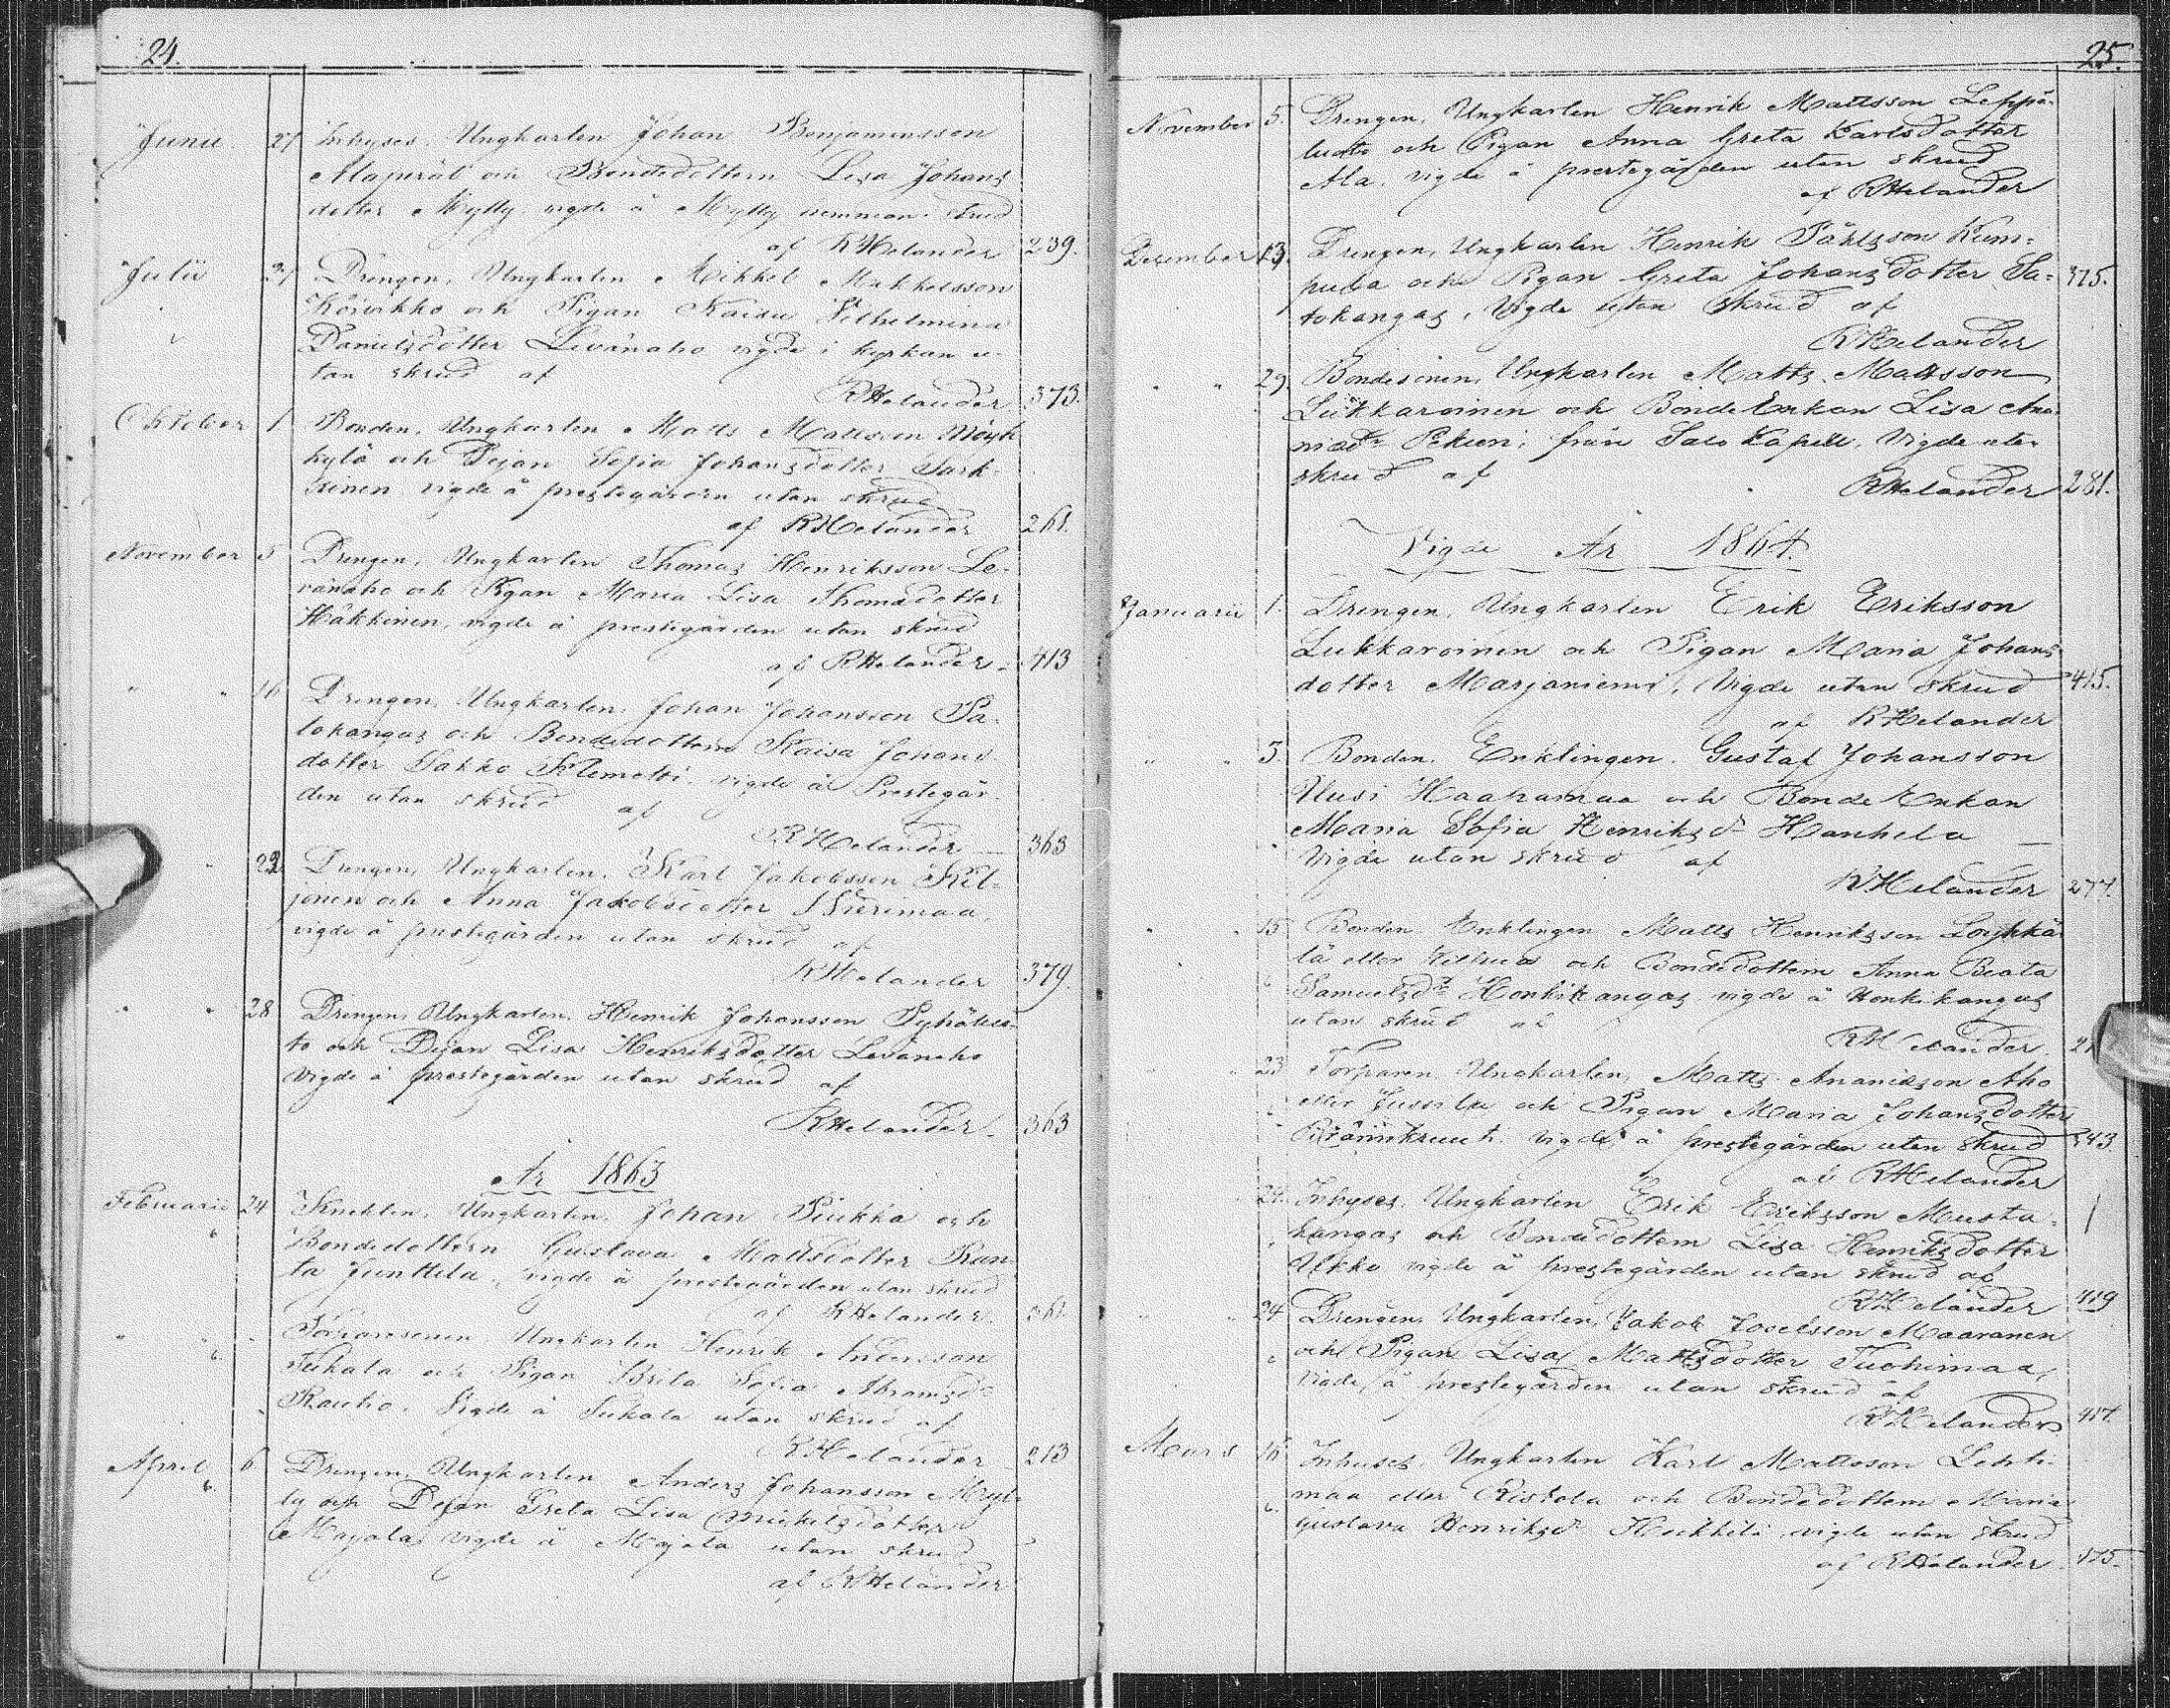 24.
Junii 27 Inhyses Ungkarlen Johan Benjaminsson
Alaperät och Bondedottern Lisa Johans
dotter Mylly vigde å Mylly hemman skrud
af RHelander 239.
Julii 27 Drengen, Ungkarlen Mikkel Mikkelsson
Körkkö och Pigan Kaisa Vilhelmina
Danielsdotter Levänaho vigde i kyrkan u-
tan skrud af
RHelander 373.
Oktober 1 Bonden, Ungkarlen Matts Mattsson Möyk
kylä och Dejan Sofia Johansdotter Sark-
kinen vigde å prestegården utan skrud
af RHelander 261.
November 5 Drengen, Ungkarlen Thomas Henriksson Le-
vänaho och Pigan Maria Lisa Thomasdotter
Häkkinen, vigde å prestegården utan skrud
af RHelander. 413
" " 16 Drengen, Ungkarlen Johan Johansson Sa-
lokangas och Bondedottern Kaisa Johans
dotter Sakko Klemetti vigde å Prestegår-
den utan skrud af
RHelander 363
" 22 Drengen, Ungkarlen, Karl Jakobsson Kil-
jonen och Anna Jakobsdotter Nierimaa,
vigde å prestegården utan skrud af
RHelander 379.
" " 28 Drengen, Ungkarlen, Henrik Johansson Pyhäluo-
to och Dejan Lisa Henriksdotter Levänaho
vigde å prestegården utan skrud af
RHelander. 363
År 1863
Februarii 24 Knekten, Ungkarlen, Johan Piukka och
Bondedottern Gustava Mattsdotter Ran-
ta Junttila, vigde å prestegården utan skrud
af RHelander. 361.
" " " Torparesonen Ungkarlen Henrik Andersson
Sukala och Pigan Brita Sofia Abramsdr
Rautio. Vigde å Sukala utan skrud af
RHelander 213
April 6 Drengen, Ungkarlen Anders Johansson Myl-
ly och Dejan Greta Lisa Michelsdotter
Majala, vigde å Majala utan skrud
af RHelander
25.
November 5. Drengen, Ungkarlen Henrik Mattsson Leppä-
luoto och Pigan Anna Greta Karlsdotter
Ala, vigde å prestegården utan skrud
af RHelander
December 13. Drengen, Ungkarlen Henrik Påhlsson Kum-
pula och Pigan Greta Johansdotter Sa- 375.
lokangas, Vigde utan skrud af
RHelander
" " 29 Bondesonen, Ungkarlen Matts Mattsson
Lukkaroinen och BondeEnkan Lisa Ana-
niædr Pekuri, från Salo Kapell, Vigde utan
skrud af
RHelander 281.
Vigde År 1864.
Januarii 1. Drengen, Ungkarlen Erik Eriksson
Lukkaroinen och Pigan Maria Johans
dotter Marjaniemi, Vigde utan skrud 415.
af RHelander
" " 5. Bonden, Enklingen, Gustaf Johansson
Uusi Haapamaa och BondeEnkan
Maria Sofia Henriksdr Hanhela
Vigde utan skrud af
RHelander 277.
" " 15 Bonden Enklingen Matts Henriksson
lä eller och Bondedottern Anna Beata
Samuelsdr Honkikangas vigde å Honkikangas
utan skrud af
RHelander.
" 23 Torparen Ungkarlen, Matts Ananiasson Aho
eller Jussila och Pigan Maria Johansdotter
vigde å prestegården utan skrud 343
af RHelander
24. Inhyses, Ungkarlen Erik Eriksson Musta-
kangas och Bondedottern Lisa Henriksdotter
Ukko vigde å prestegården utan skrud af
RHelander 419
" " 24 Drengen, Ungkarlen, Jakob Joelsson Maaranen
och Pigan Lisa Mattsdotter Tuohimaa,
vigde å prestegården utan skrud af
RHelander 417.
Mars 16 Inhyses, Ungkarlen Karl Mattsson Lehti-
maa eller Ristola och Bondedottern Maria
Gustava Henriksdr Heikkilä vigde utan skrud
af RHelander. 175.